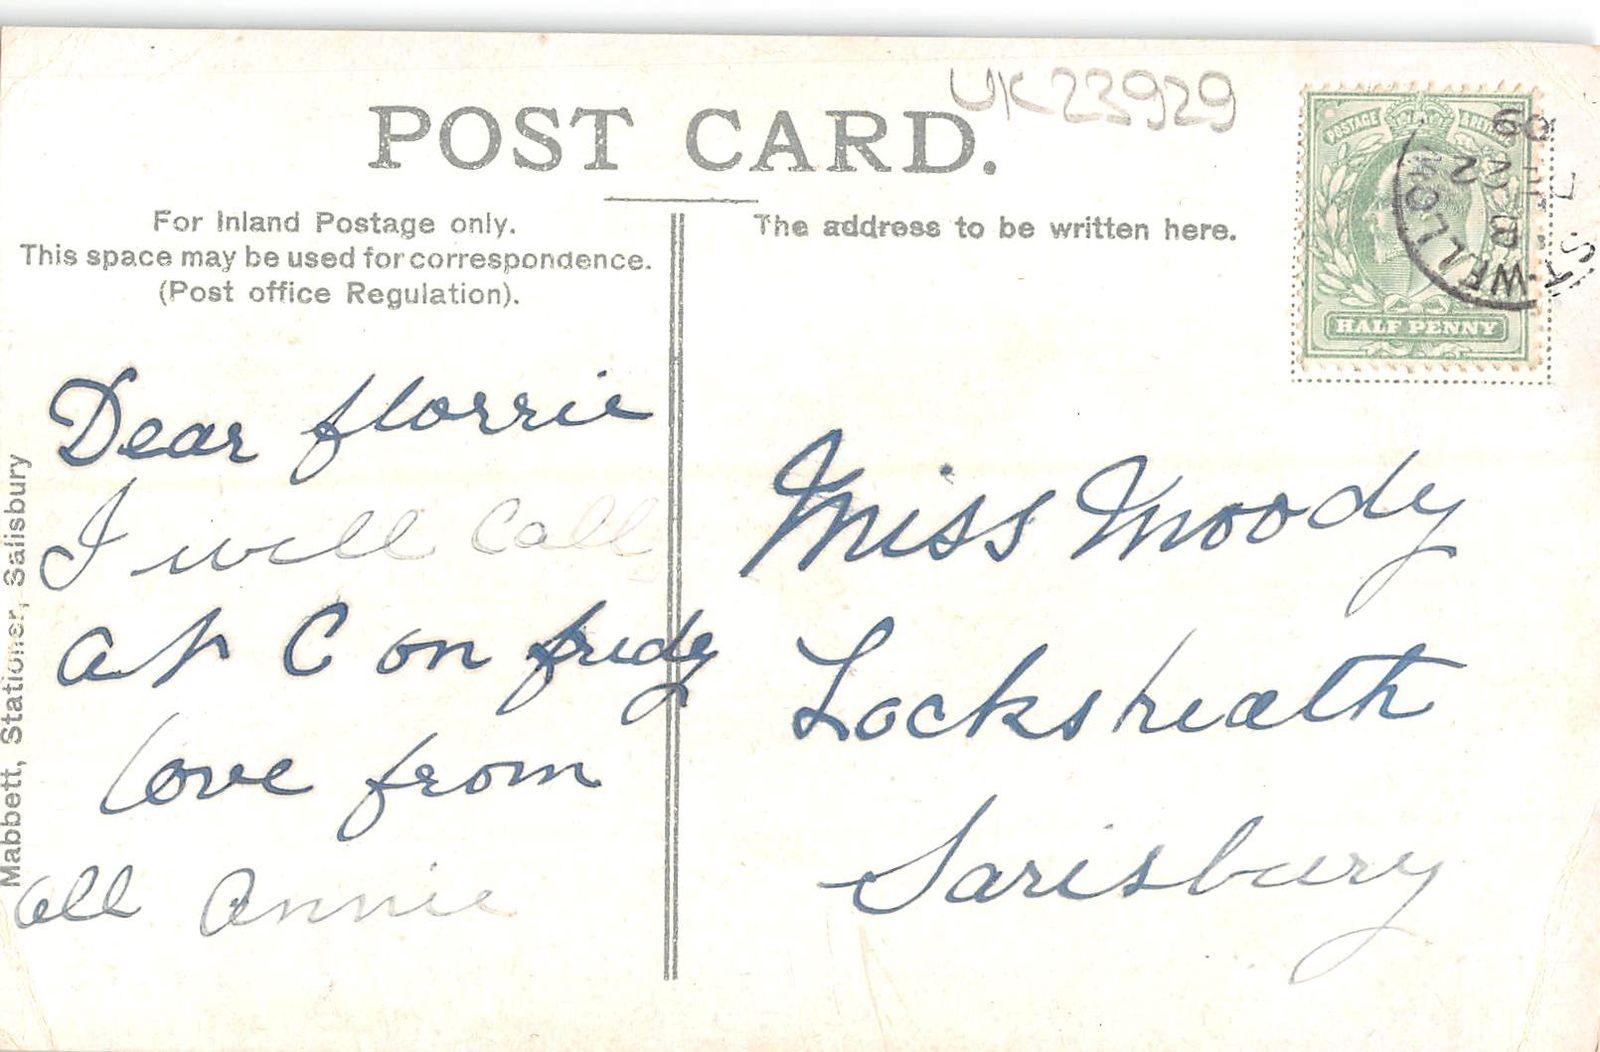 UK23929
POST CARD.
For Inland Postage only.
This space may be used for correspondence.
(Post office Regulation).
The address to be written here.
POSTAGE
HALF PENNY
Dear florrie
I will Call
at C on fridy
love from
all Annie
Miss Moody
Locksheath
Sarisbury
Mabbett, Stationer, Salisbury